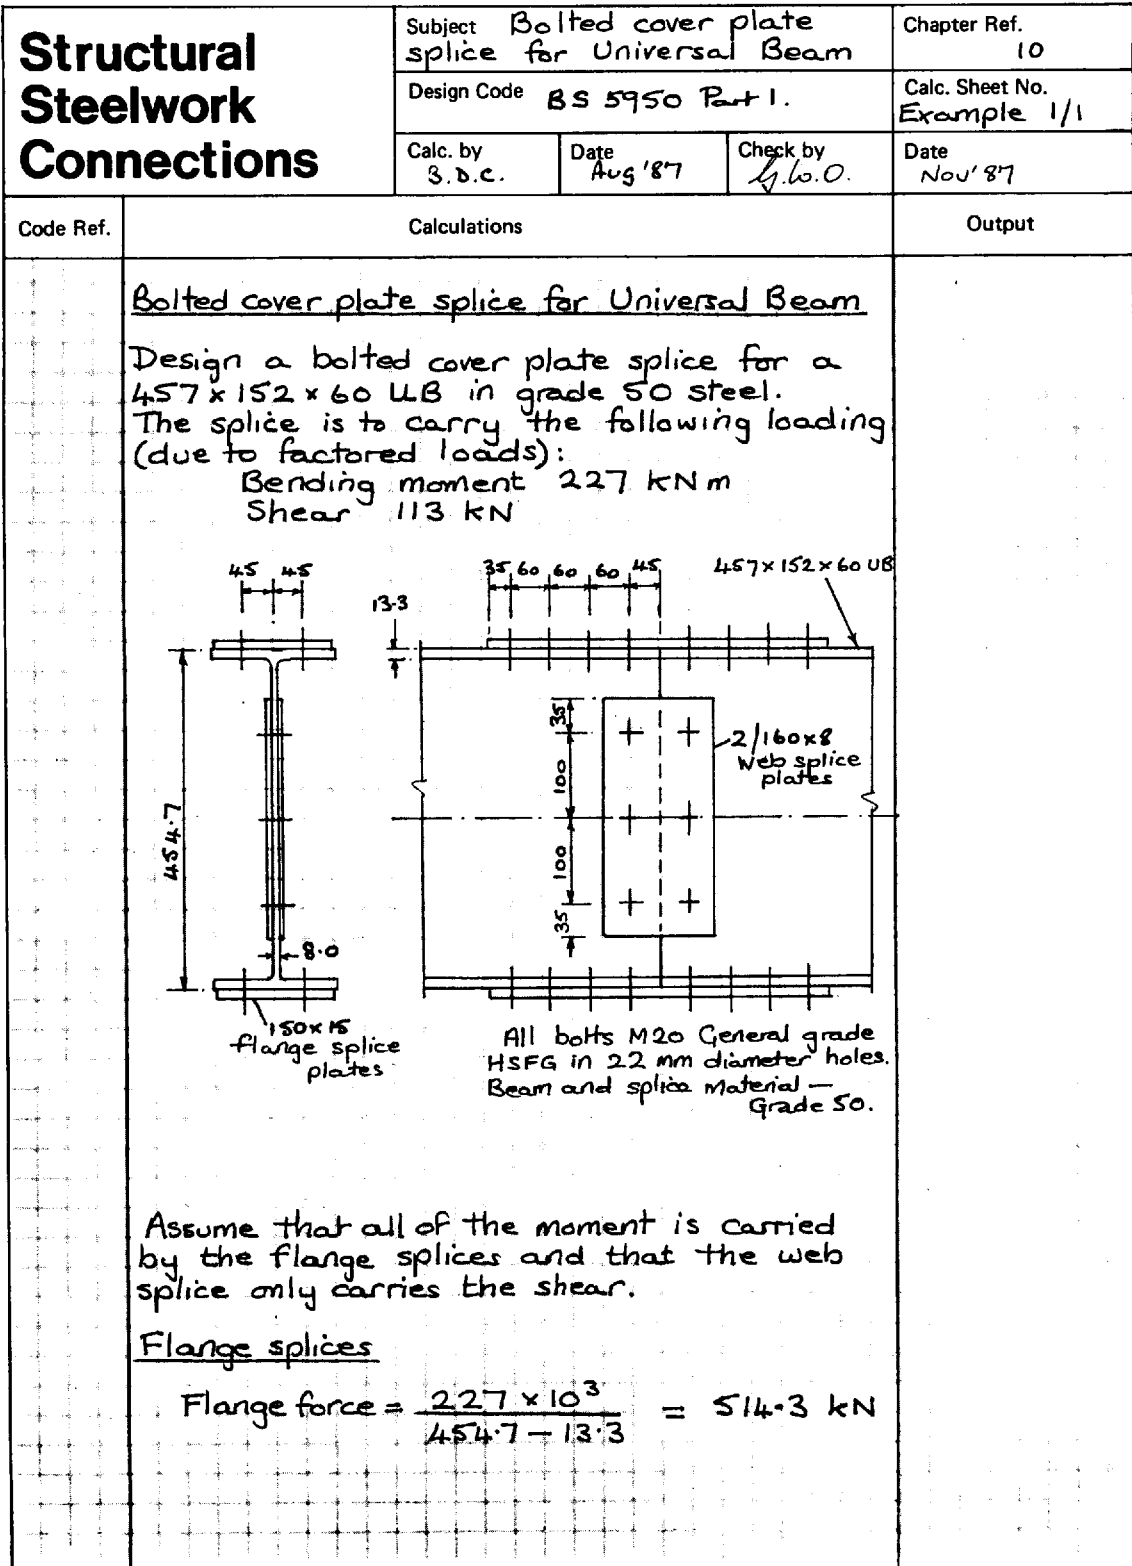 Structural
Steelwork
Connections
Subject Bolted cover plate
splice for Universal Beam
Chapter Ref.
10
Design Code BS 5950 Part 1.
Calc. Sheet No.
Example 1/1
Calc. by
B.D.C.
Date
Aug '87
Check by
G.W.O.
Date
Nov '87
Code Ref.
Calculations
Output
Bolted cover plate splice for Universal Beam
Design a bolted cover plate splice for a
457 x 152 x 60 UB in grade 50 steel.
The splice is to carry the following loading
(due to factored loads):
Bending moment 227 kN m
Shear 113 kN
45 45
35 60 60 60 45
457 x 152 x 60 UB
13.3
35
2/160x8
Web splice
plates
100
454.7
100
35
8.0
150x15
flange splice
plates
All bolts M20 General grade
HSFG in 22 mm diameter holes.
Beam and splice material —
Grade 50.
Assume that all of the moment is carried
by the flange splices and that the web
splice only carries the shear.
Flange splices
Flange force = 227 x 10³ / 454.7 - 13.3 = 514.3 kN